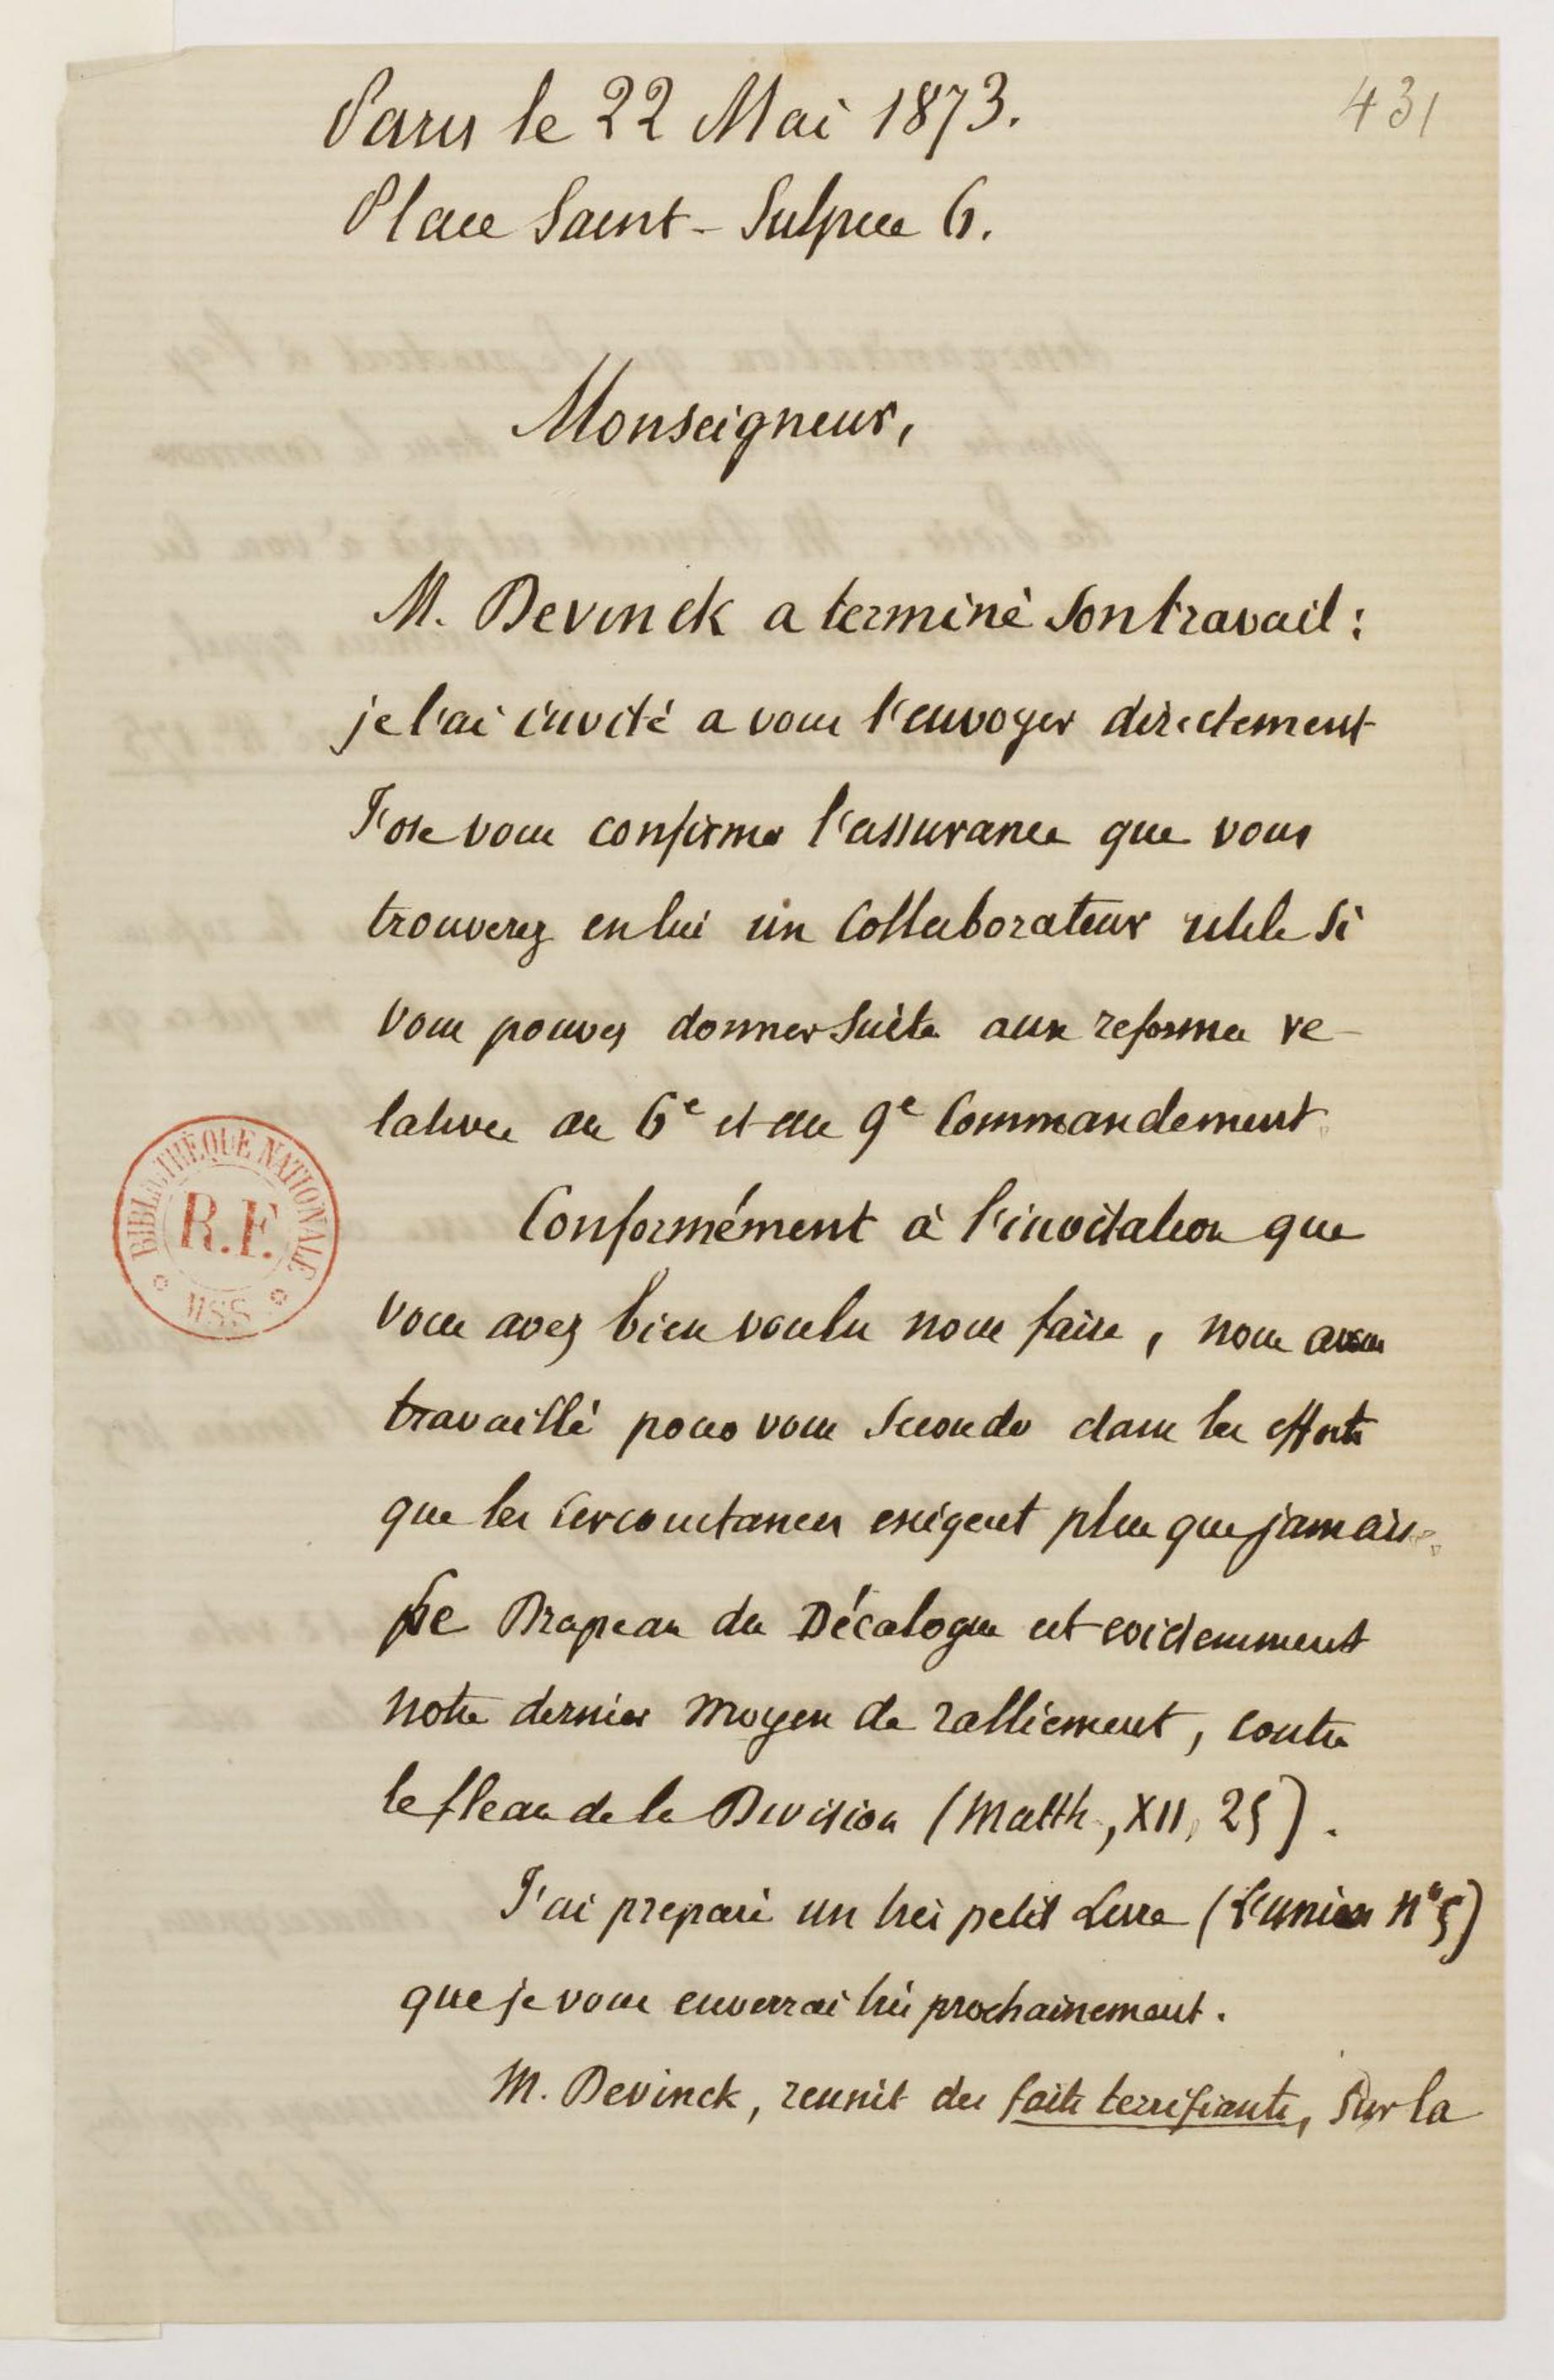 431
Paris le 22 Mai 1873.
Place Saint-Sulpice 6.
Monseigneur,
M. Devinck a terminé son travail :
je l'ai invité a vous l'envoyer directement
J'ose vous confirmer l'assurance que vous
trouverez en lui un collaborateur utile si
vous pouvez donner suite aux reformes re-
latives au 6e et au 9e Commandement.
Conformément à l'invitation que
vous avez bien voulu nous faire, nous avons
travaillé pour vous seconder dans les efforts
que les circonstances exigent plus que jamais.
Le Drapeau du Décalogue est evidemment
notre dernier moyen de ralliement, contre
le fleau de la Division (Matth., XII, 25).
J'ai preparé un très petit Livre (L'union n° 5)
que je vous enverrai très prochainement.
M. Devinck, reunit des faits terrifiants, sur la
BIBLIOTHÈQUE NATIONALE
R.F.
MSS